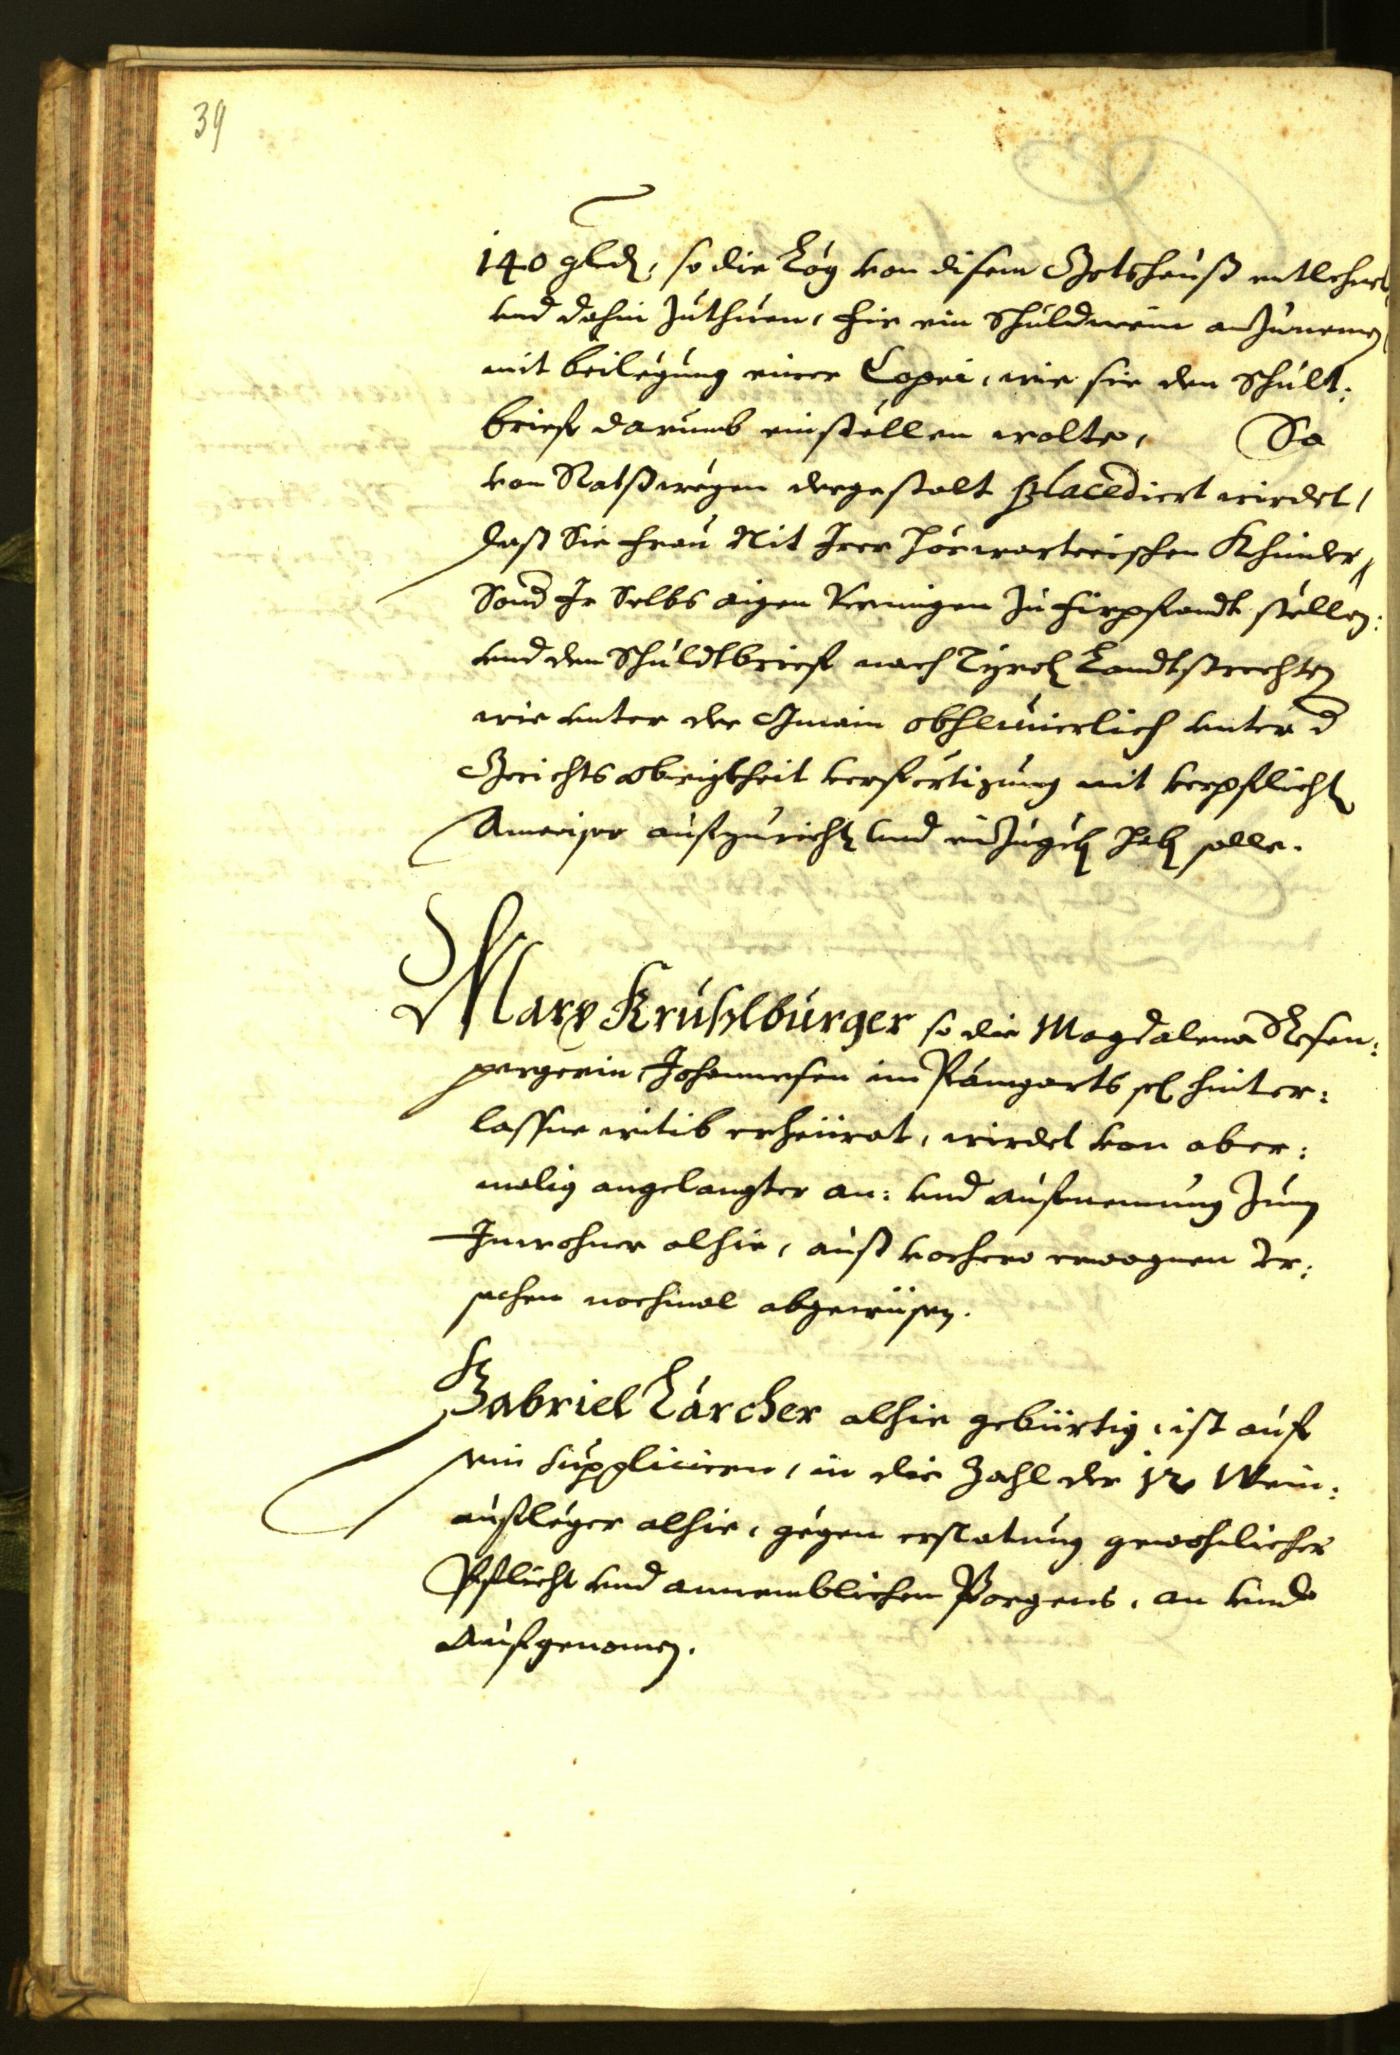 39
140 gldn, so die Zög von disem Gotshauß entlehnet
und dahin zuthuen, für ein Schuldnerin anzunemen
mit beilegung einer Copei, wie sie den Schult:
brief darumb einstellen wolte, So
von Ratßwegen dergestalt placediert wirdet,
daß Sie Frau Nit Irer Hörwarterischen Khinder,
Sond Ir Selbs aigen Vermigen zu Fürpfandt stellen:
und den Schuldtbrief nach Tyrol Landtsrechten
wie unter der Gmain obhleüierlich unter d
Gerichts obrigkheit verfertigung mit verpflicht
Anweiser aufzuricht und einzugeb hab solle.
Marx Kruhlburger so die Magdalena Rosen:
pergerin, Johannesen im Pämgarts sel hinter:
lassne witib erheürat, wirdet von aber:
malig angelangter an: und aufnemung zum
Inwohner alhie, auß vorhero erwognen Ur:
sachen nochmal abgewüsen.
Gabriel Lärcher alhie gebürtig, ist auf
sein Suppliciern, in die Zahl der 12 Wein:
außleger alhie, gegen erstatung gewohnlicher
Pflicht und annemblichen Porgens, an und
Aufgenomen.